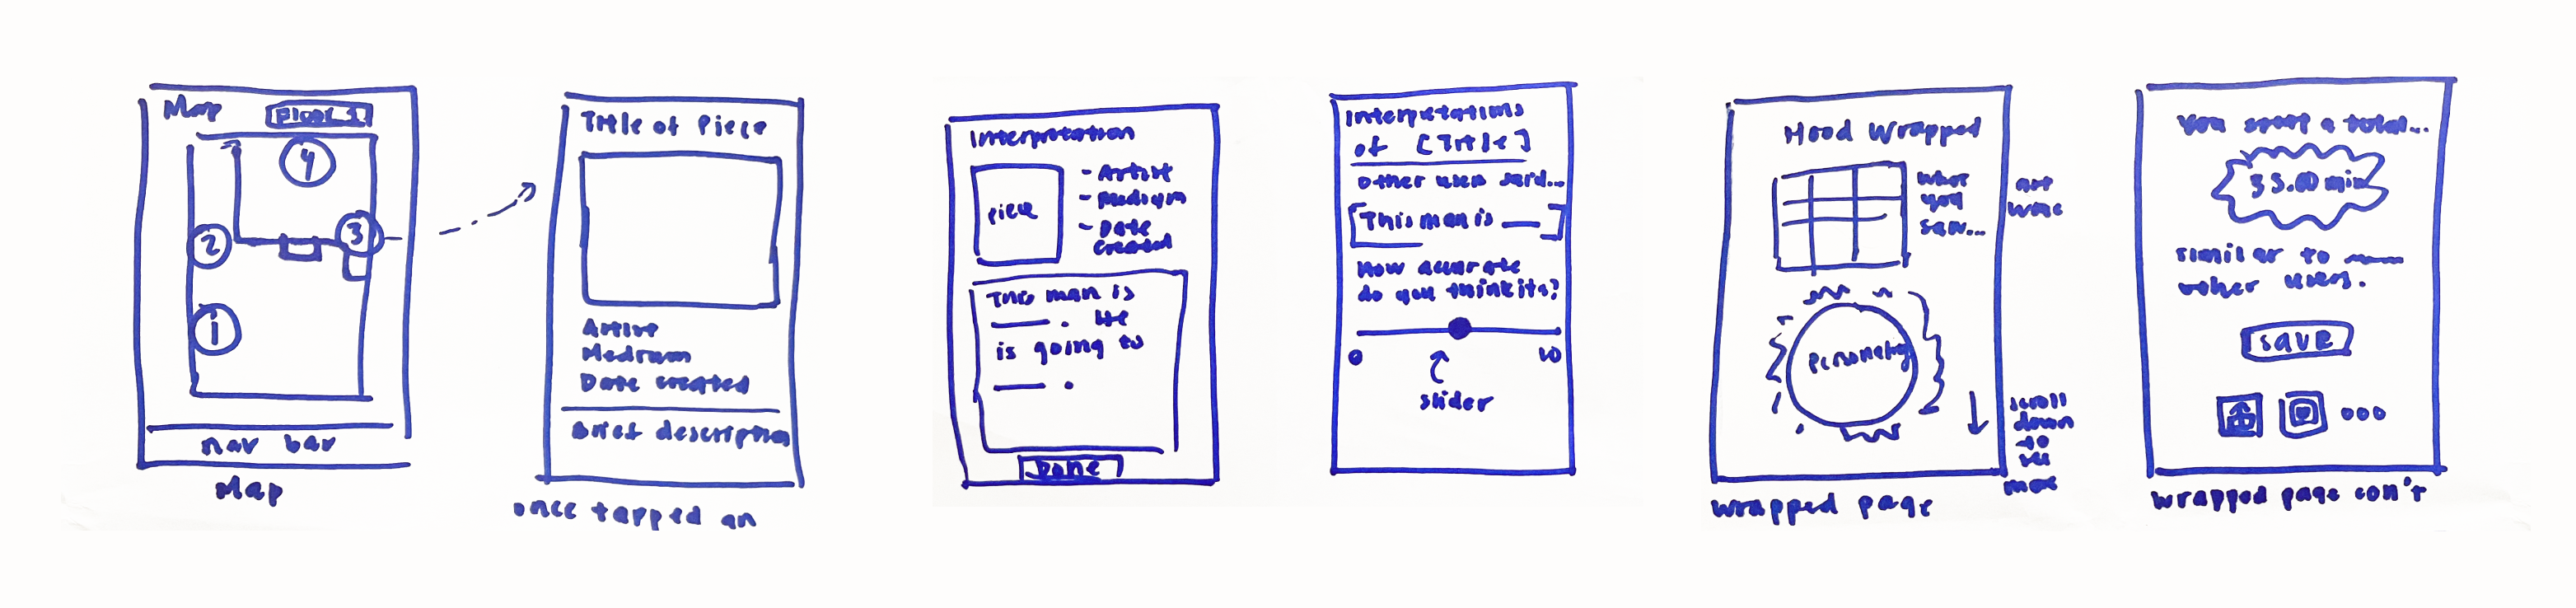 Map
Floor 1
4
2
3
1
nav bar
Map
Title of Piece
Artist
Medium
Date created
Brief description
once tapped on
Interpretation
piece
- Artist
- Medium
- Date
created
This man is
____. He
is going to
____.
Done
Interpretations
of [Title]
other users said...
[This man is ___]
How accurate
do you think its?
0
10
slider
Hood Wrapped
what
you
saw...
art
Personality
scroll
down
to
see
more
wrapped page
You spent a total...
min
similar to ____
other users.
SAVE
...
wrapped page con't